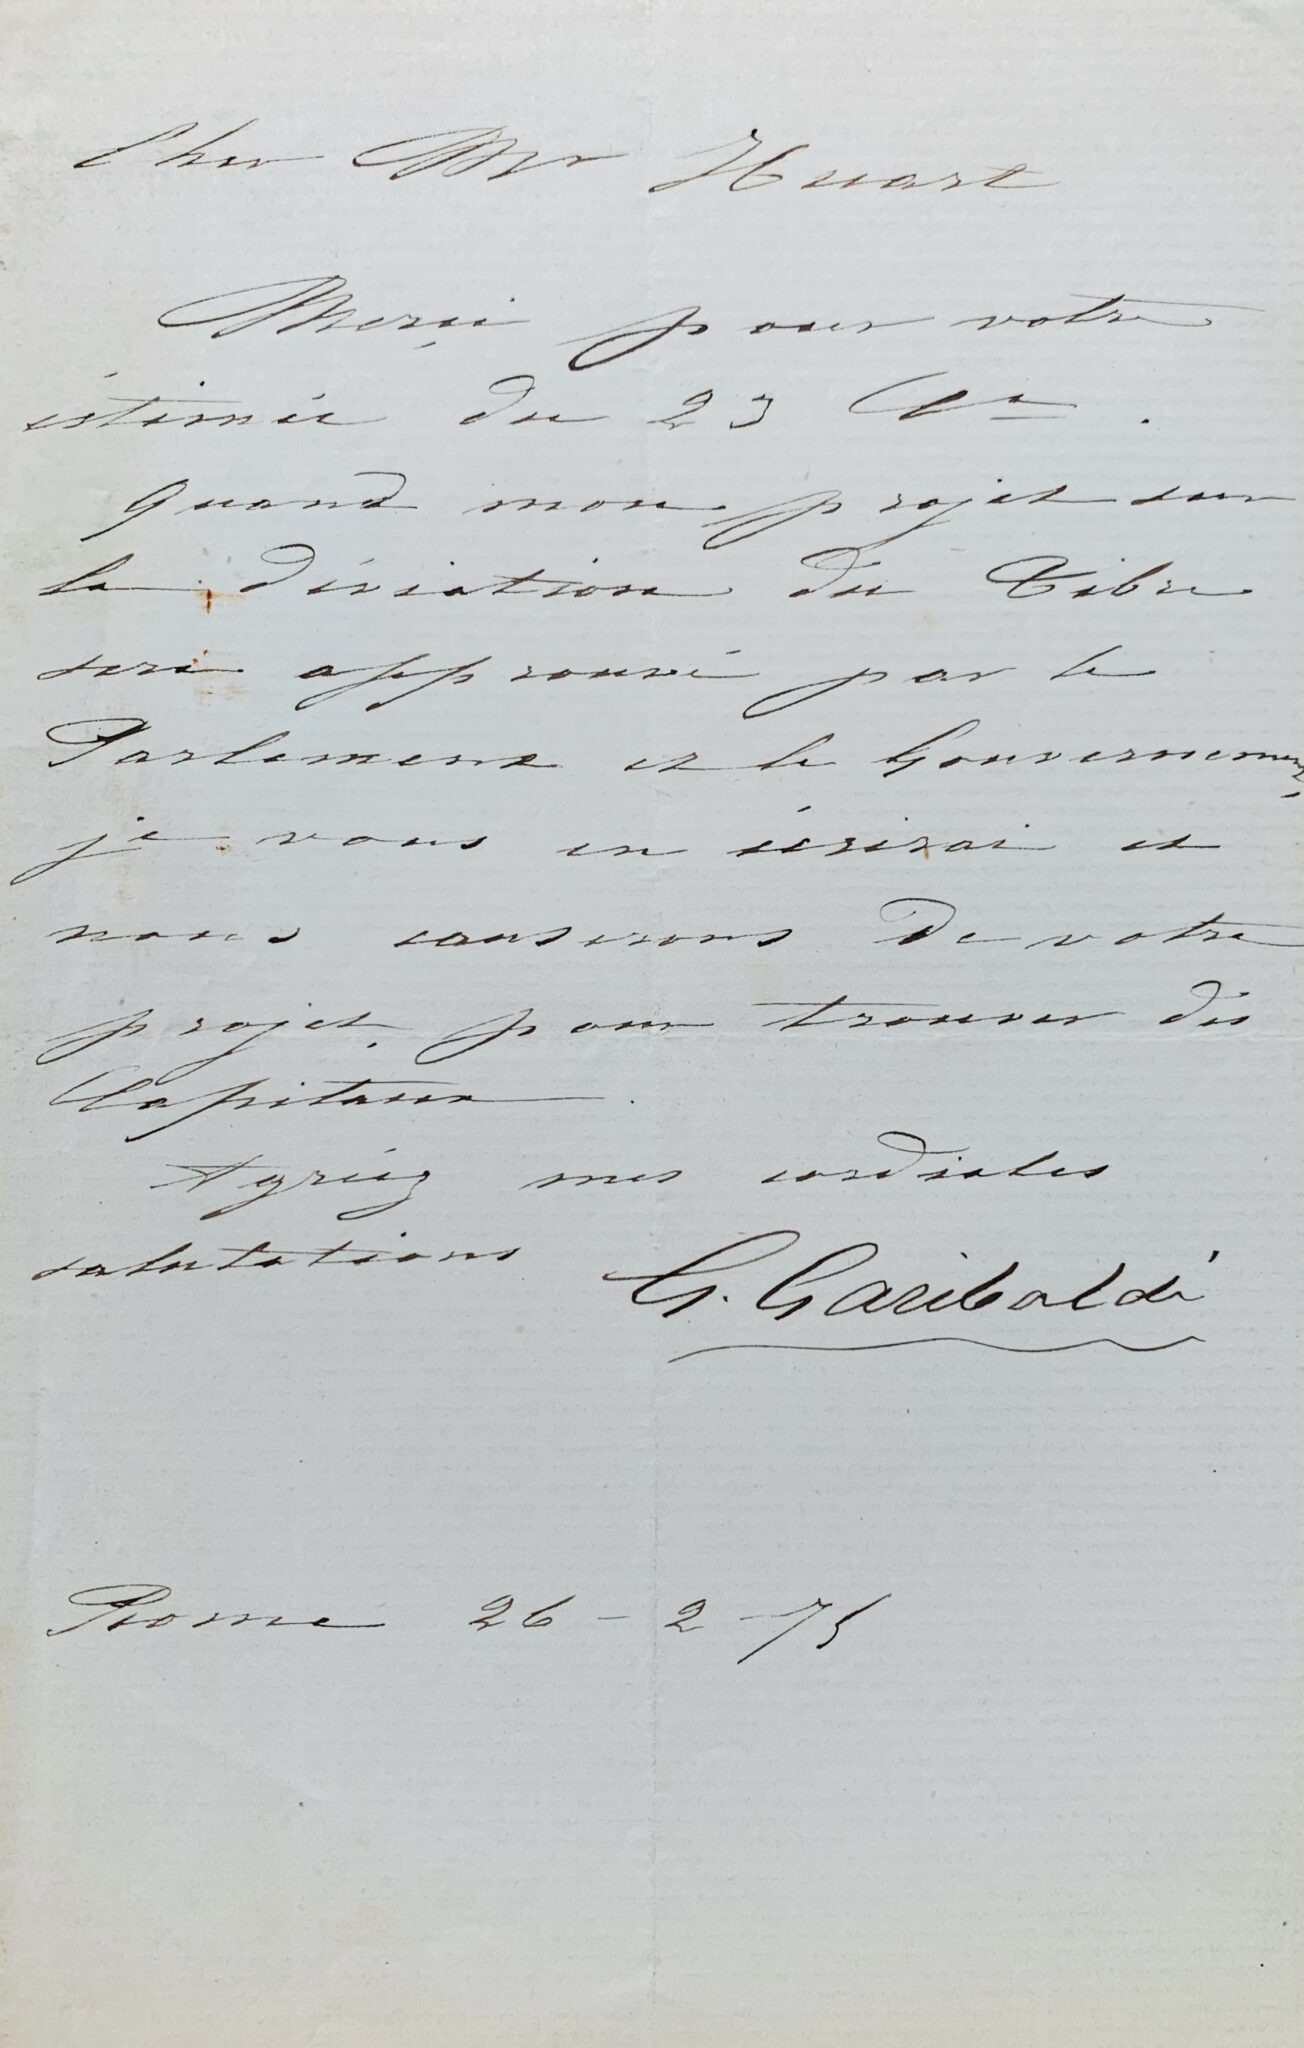 Cher Mr Huart
Merçi pour votre
éstimée du 23 Cte.
Quand mon projet sur
la déviation du Tibre
sera approuvé par le
Parlement et le Gouvernement,
je vous en écrirai et
nous causerons de votre
projet, pour trouver dés
Capitaux.
Agriéz mes cordiales
salutations
G. Garibaldi
Rome 26-2-75